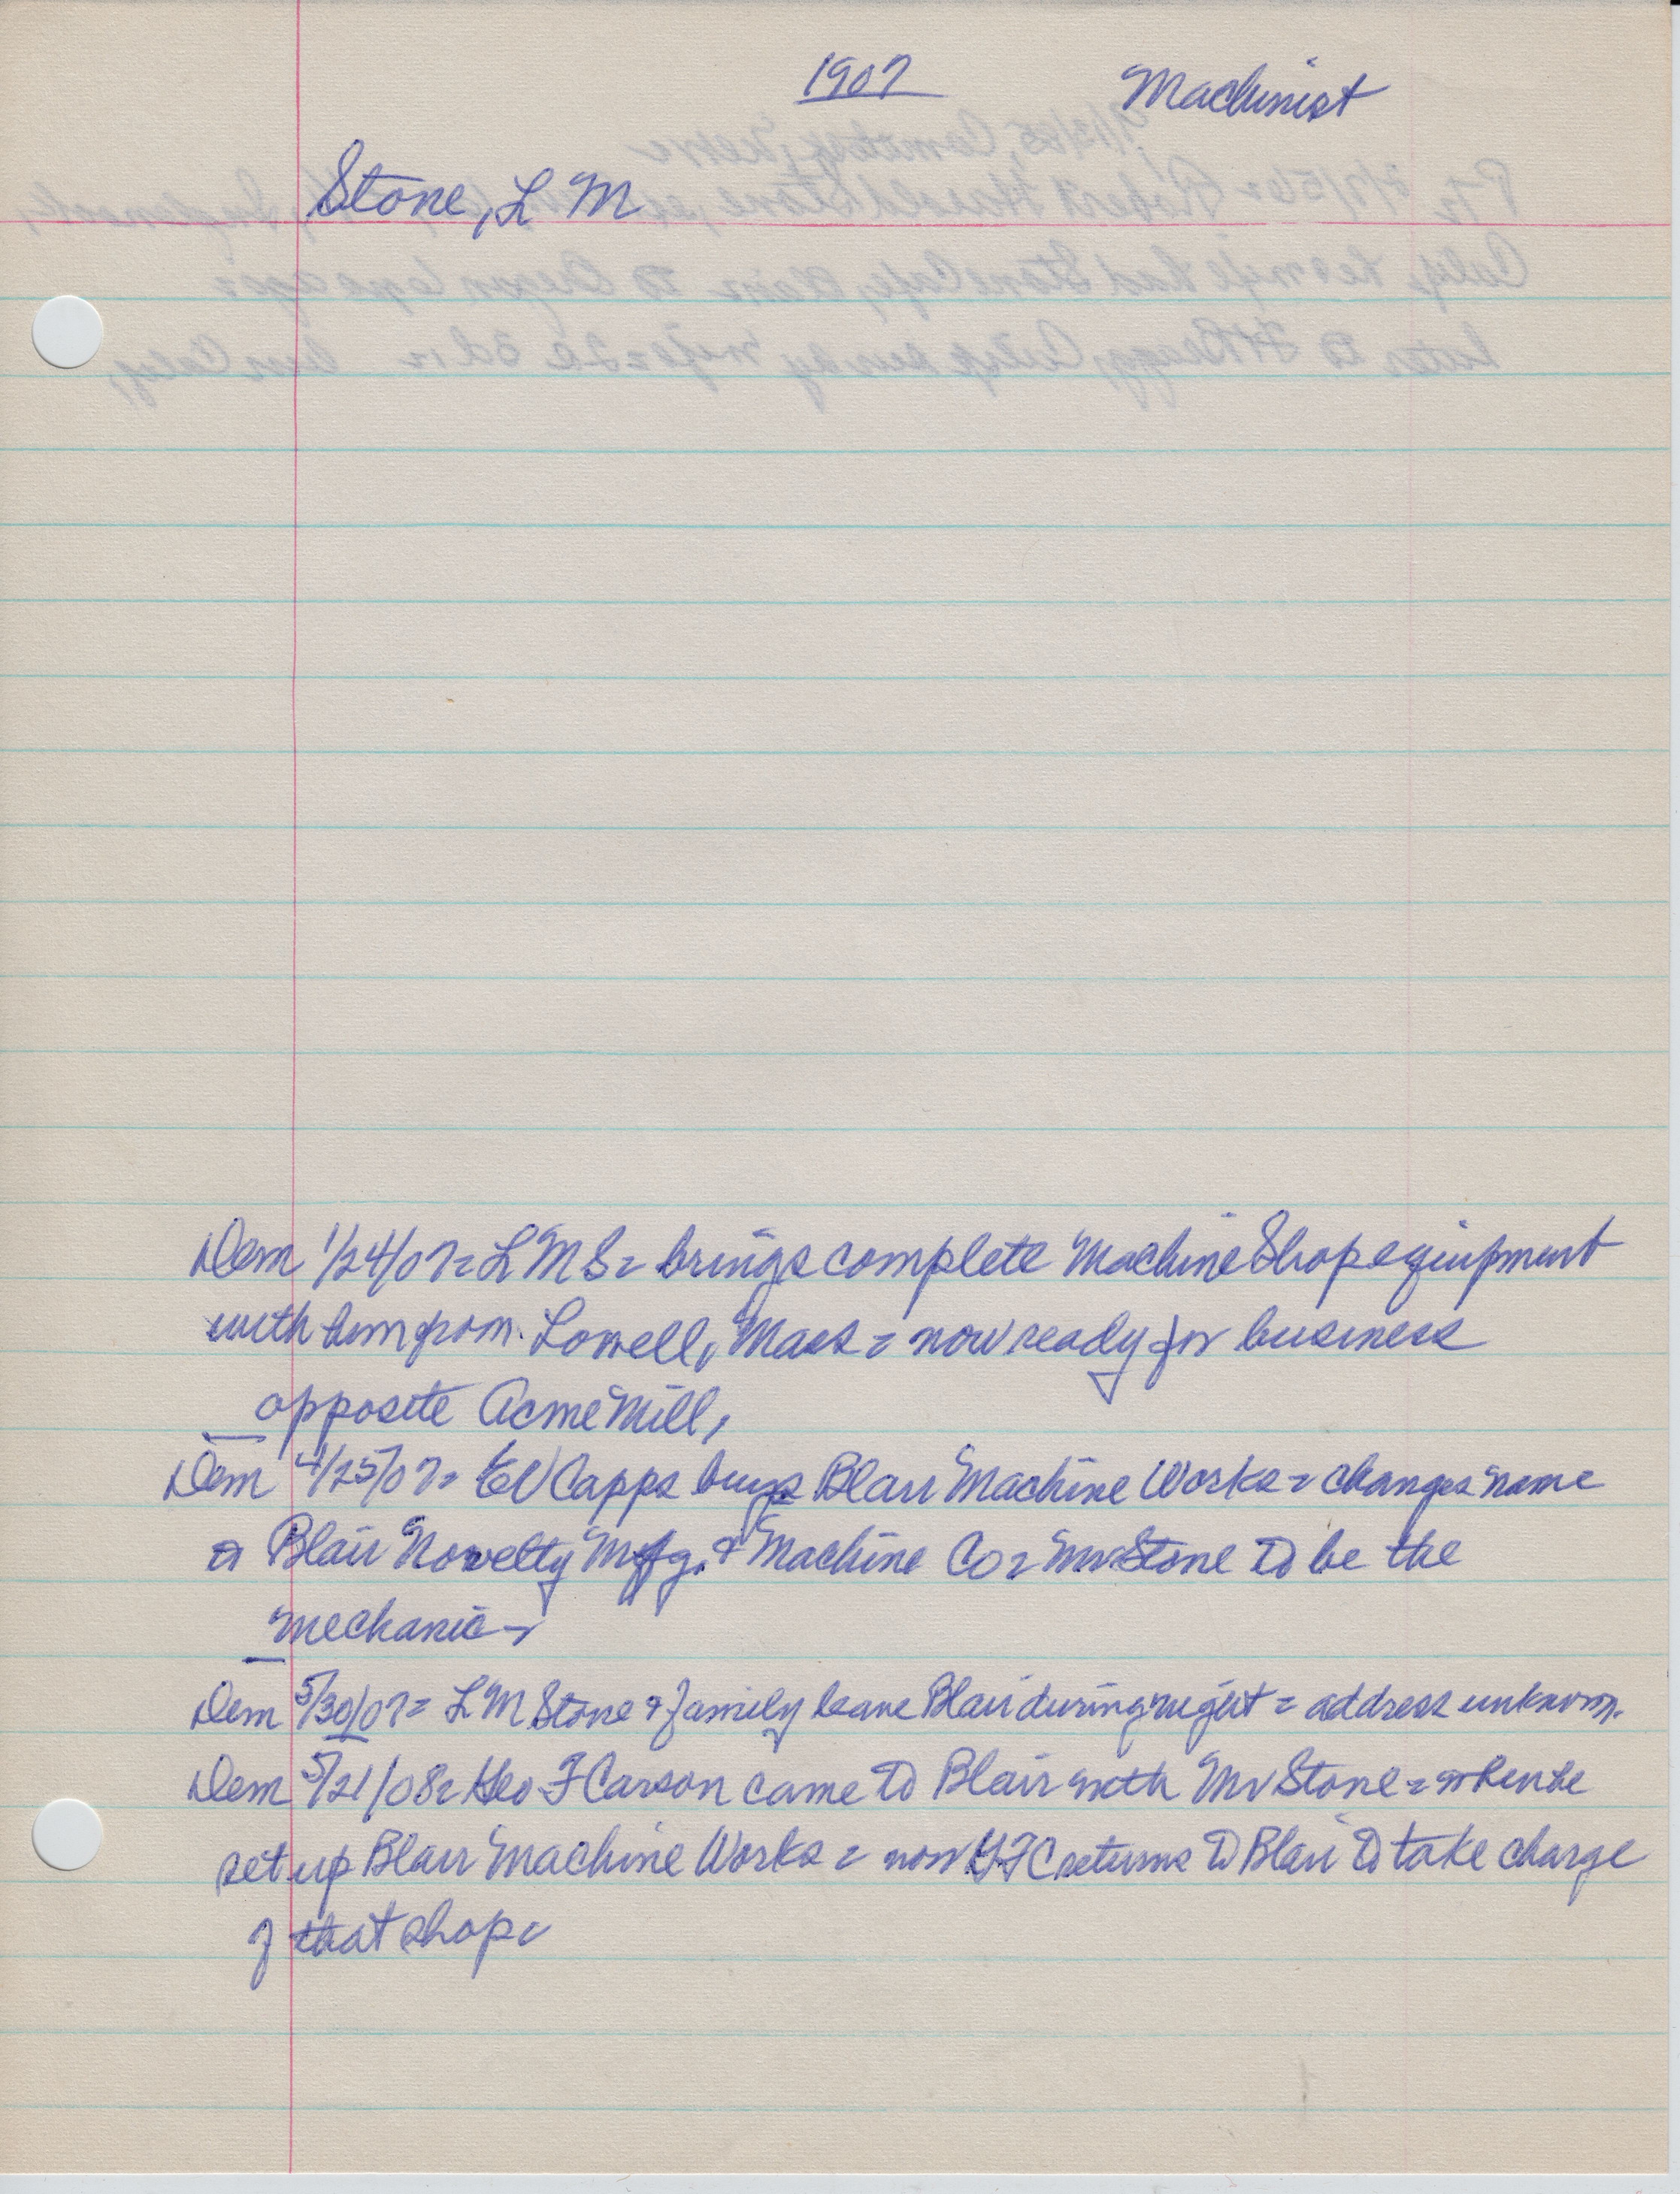 1907 Machinist
Stone, L M
Dem 1/24/07= L M S= brings complete Machine Shop equipment
with him from Lowell, Mass = now ready for business
opposite Acme Mill,
Dem 4/25/07= Capps buys Blair Machine Works = changes name
to Blair Novelty Mfg. & Machine Co = Mr Stone to be the
mechanic
Dem 5/30/07= L M Stone & family leave Blair during night = address unknown.
Dem 5/21/08= Geo F Carson came to Blair with Mr Stone = when he
set up Blair Machine Works = now GFC returns to Blair to take charge
of that shop=